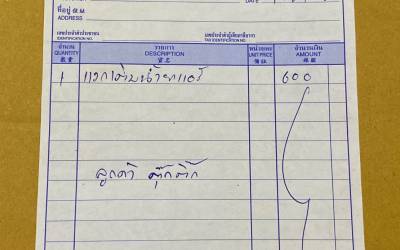 ที่อยู่ 住址
ADDRESS
DATE
เลขประจำตัวประชาชน
IDENTIFICATION NO.
เลขประจำตัวผู้เสียภาษีอากร
TAX IDENTIFICATION NO.
จำนวน รายการ หน่วยละ จำนวนเงิน
QUANTITY DESCRIPTION UNIT PRICE AMOUNT
數量 貨名
1 600
ลูกค้า ตุ๊กติ๊ก